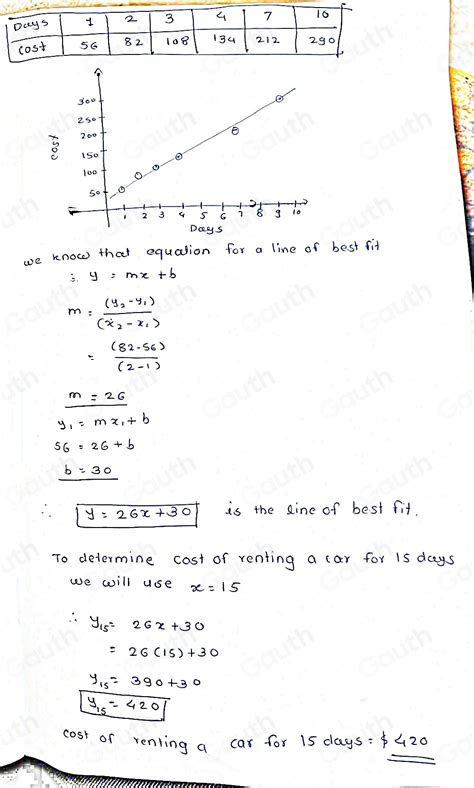 Days 1 2 3 4 7 10
Cost 56 82 108 134 212 290
300
250
200
150
100
50
cost
1 2 3 4 5 6 7 8 9 10
Days
we know that equation for a line of best fit
∴ y = mx + b
m = (y₂ - y₁) / (x₂ - x₁)
= (82-56) / (2-1)
m = 26
y₁ = mx₁ + b
56 = 26 + b
b = 30
∴ y = 26x + 30 is the line of best fit.
To determine cost of renting a car for 15 days
we will use x = 15
∴ y₁₅ = 26x + 30
= 26(15) + 30
y₁₅ = 390 + 30
y₁₅ = 420
cost of renting a car for 15 days = $ 420
Gauth